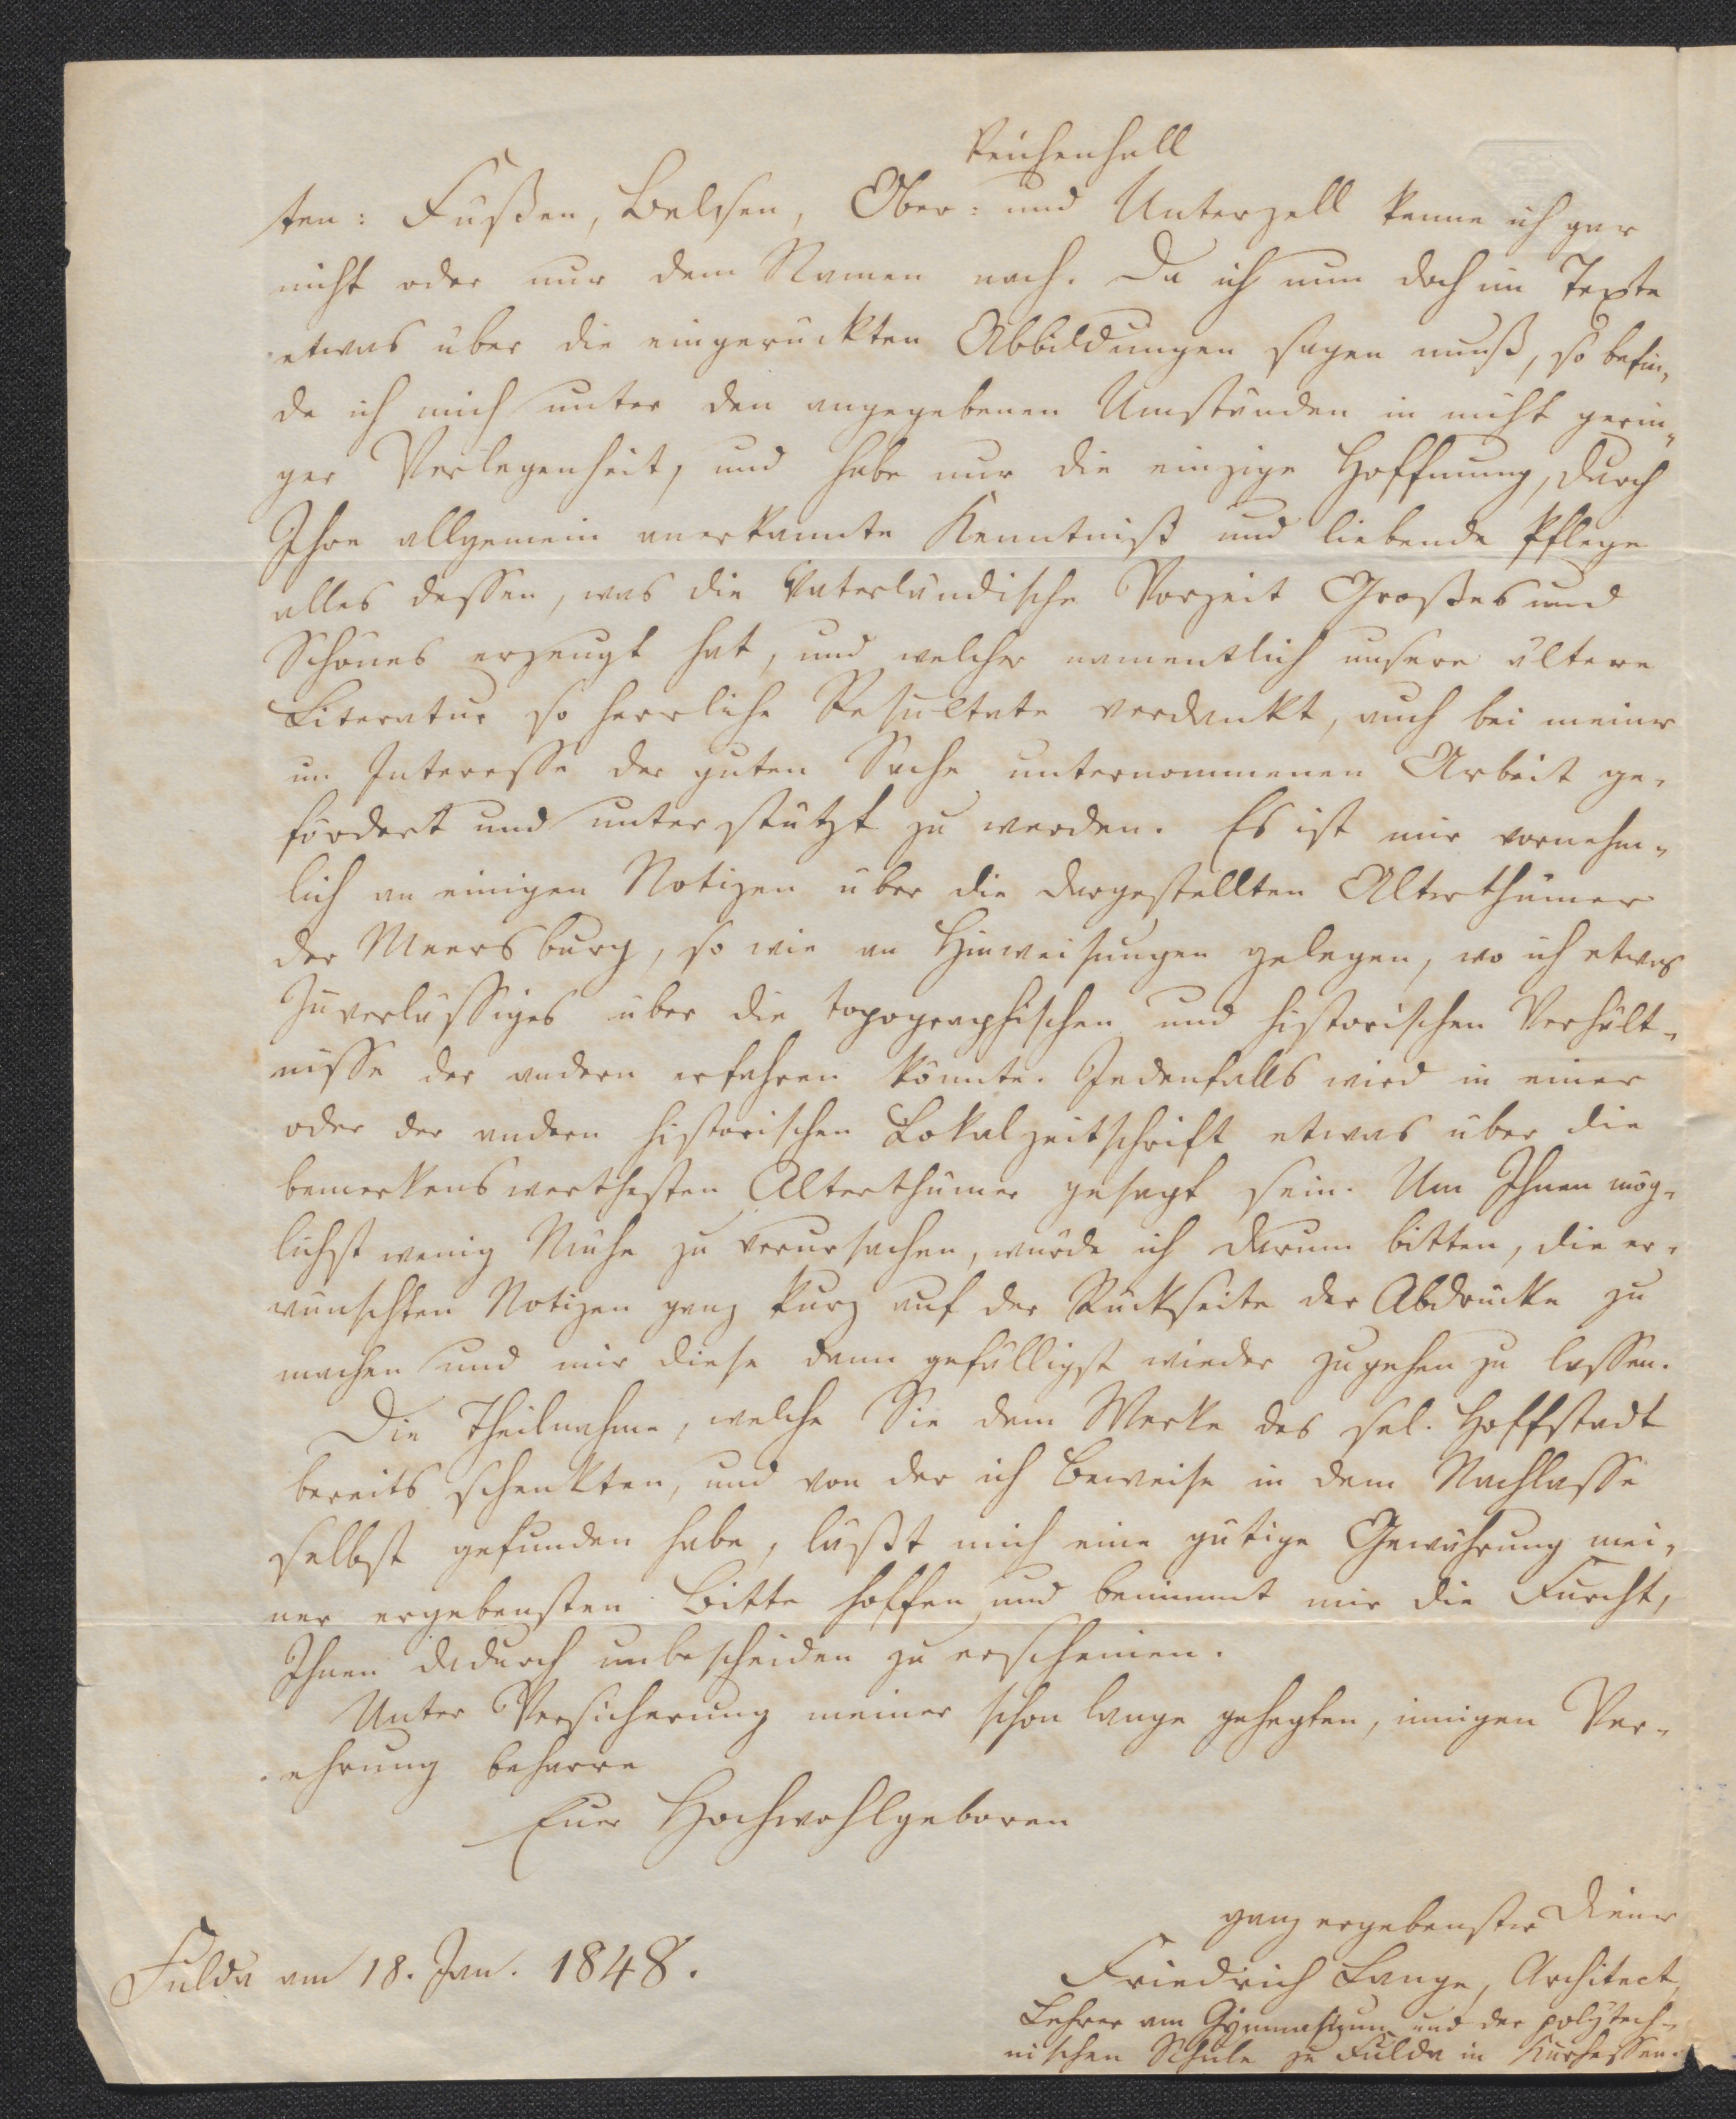 Reichenhall
ten: Fußen, Belsen, Ober- und Unterzell kenne ich gar
nicht oder nur dem Namen nach. Da ich nun doch im Texte
etwas über die eingerückten Abbildungen sagen muß, so befin-
de ich mich unter den angegebenen Umständen in nicht gerin-
ger Verlegenheit, und habe nur die einzige Hoffnung, durch
Ihre allgemein anerkannte Kenntniß und liebende Pflege
alles dessen, was die Vaterländische Vorzeit Großes und
Schönes erzeugt hat, und welcher namentlich unsere ältere
Literatur so herrliche Resultate verdankt, auch bei meiner
im Interesse der guten Sache unternommenen Arbeit ge-
fördert und unterstützt zu werden. Es ist mir vornehm-
lich an einigen Notizen über die dargestellten Alterthümer
der Meersburg, so wie an Hinweisungen gelegen, wo ich etwas
Zuverlässiges über die topographischen und historischen Verhält-
nisse der andern erfahren könnte. Jedenfalls wird in einer
oder der andern historischen Lokalzeitschrift etwas über die
bemerkenswerthesten Alterthümer gesagt sein. Um Ihnen mög-
lichst wenig Mühe zu verursachen, würde ich darum bitten, die er-
wünschten Notizen ganz kurz auf der Rückseite der Abdrücke zu
machen und mir diese dann gefälligst wieder zugehen zu lassen.
Die Theilnahme, welche Sie dem Werke des sel. Hoffstadt
bereits schenkten, und von der ich Beweise in dem Nachlasse
selbst gefunden habe, läßt mich eine gütige Gewährung mei-
ner ergebensten Bitte hoffen und benimmt mir die Furcht,
Ihnen dadurch unbescheiden zu erscheinen.
Unter Versicherung meiner schon lange gehegten, innigen Ver-
ehrung beharre
Euer Hochwohlgeboren
ganz ergebenster Diener
Fulda am 18. Jan. 1848.
Friedrich Lange, Architect,
Lehrer am Gymnasium und der polytech-
nischen Schule zu Fulda in Kurhessen.